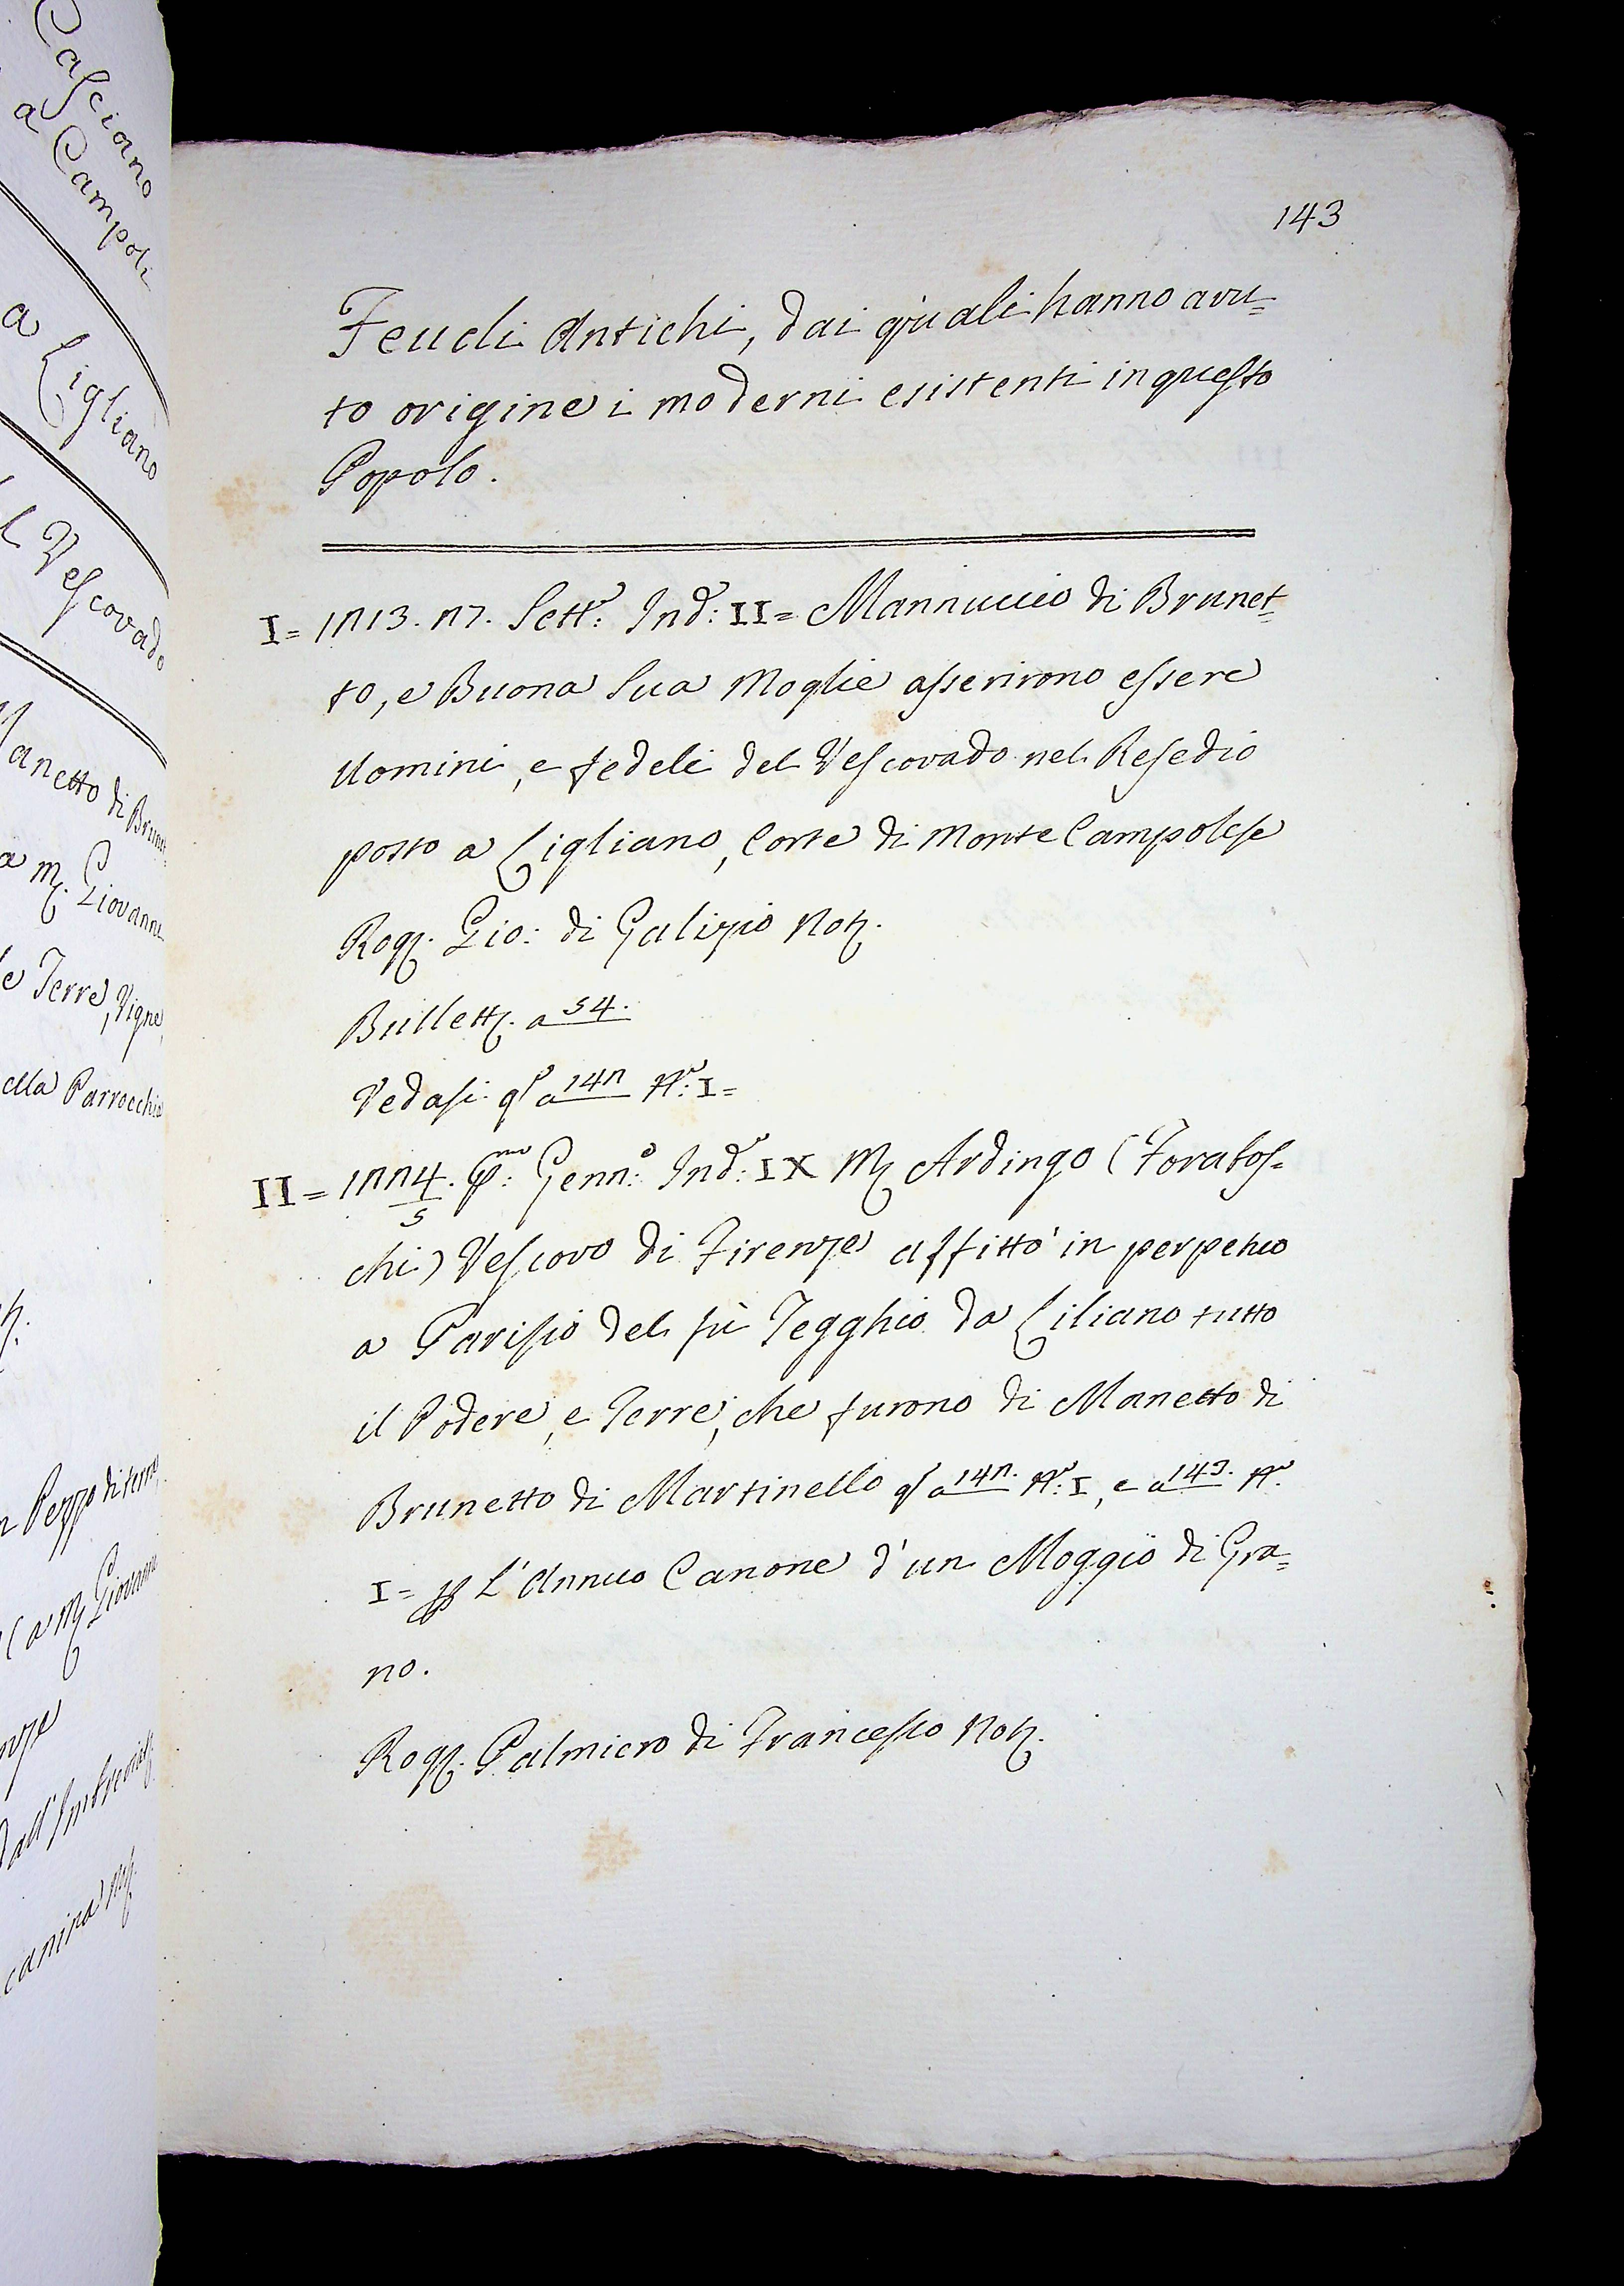 Casciano
a Campoli
a Cigliano
l Vescovado
Manetto di Brunet
a M. Giovanni
le Terre, Vigne,
ella Parrocchia
n Pezzo di terra,
(a M. Giovanni
nze
dall'Imbreviat.
143
Feudi Antichi, dai quali hanno avu=
to origine i moderni esistenti in questo
Popolo.
I= 1213. 27. Sett.e: Ind.e: II= Mannuccio di Brunet=
to, e Buona Sua Moglie asserirono essere
Uomini, e fedeli del Vescovado nel Resedio
posto a Cigliano, Corte di Monte Campolese
Rog. Gio: di Galizio Not.
Bullett. a 54.
Vedasi q.o a 142 N.o: I=
II= 1224/5. P.mo: Genn.o: Ind.e: IX M. Ardingo (Forabos=
chi) Vescovo di Firenze affittò in perpetuo
a Parisio del fù Tegghio da Ciliano tutto
il Podere, e Terre, che furono di Manetto di
Brunetto di Martinello q.o a 142. N.o: I, e a 143. N.o
I= p L'Annuo Canone d'un Moggio di Gra=
no.
Rog. Palmiero di Francesco Not.